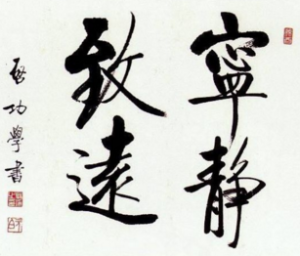 寧靜
致遠
啟功學書